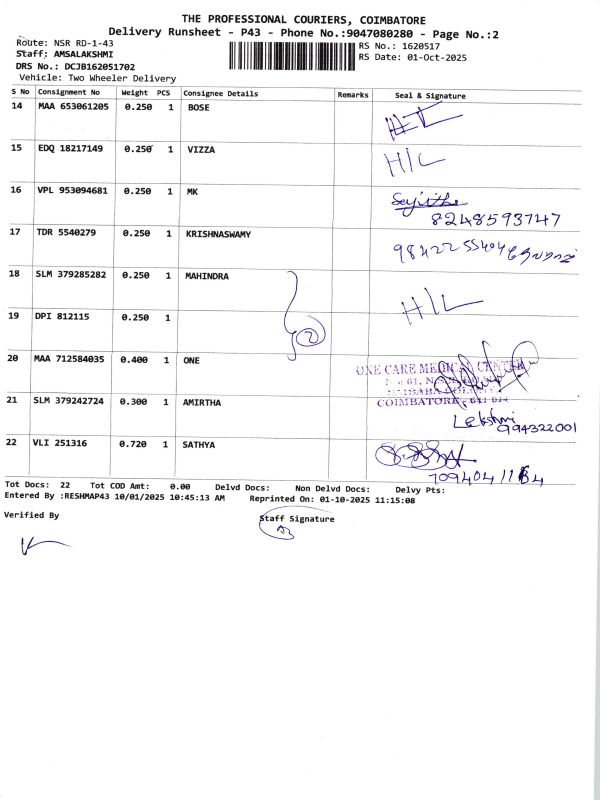 THE PROFESSIONAL COURIERS, COIMBATORE
Delivery Runsheet - P43 - Phone No.:9047080280 - Page No.:2
Route: NSR RD-1-43 RS No.: 1620517
Staff: AMSALAKSHMI RS Date: 01-Oct-2025
DRS No.: DCJB162051702
Vehicle: Two Wheeler Delivery
S No Consignment No Weight PCS Consignee Details Remarks Seal & Signature
14 MAA 653061205 0.250 1 BOSE
15 EDQ 18217149 0.250 1 VIZZA H/L
16 VPL 953094681 0.250 1 MK
8248593747
17 TDR 5540279 0.250 1 KRISHNASWAMY
18 SLM 379285282 0.250 1 MAHINDRA H/L
19 DPI 812115 0.250 1 2
20 MAA 712584035 0.400 1 ONE ONE CARE MEDICAL CENTRE
21 SLM 379242724 0.300 1 AMIRTHA COIMBATORE
Lekshmi
994322001
22 VLI 251316 0.720 1 SATHYA
Tot Docs: 22 Tot COD Amt: 0.00 Delvd Docs: Non Delvd Docs: Delvy Pts:
Entered By :RESHMAP43 10/01/2025 10:45:13 AM Reprinted On: 01-10-2025 11:15:08
Verified By Staff Signature